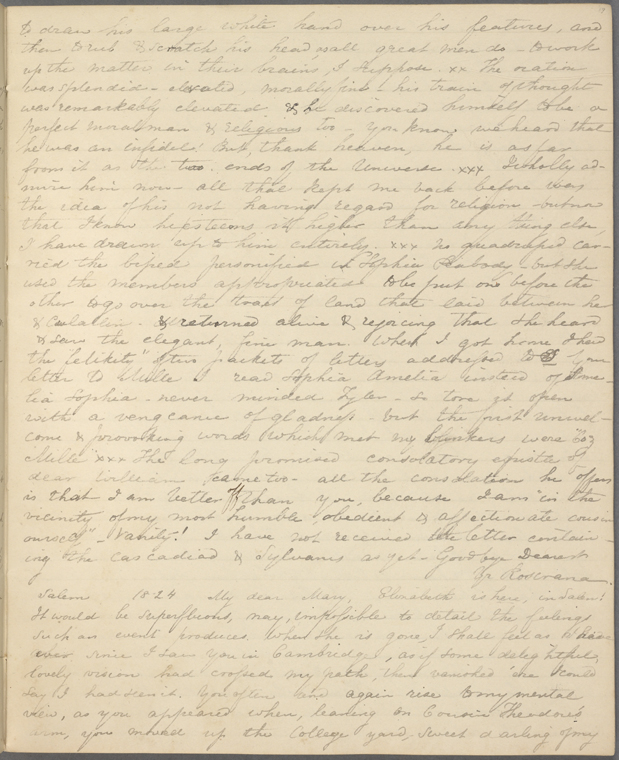 to draw his large white hand over his features, and
then to rub & scratch his head, as all great men do - to work
up the matter in their brains, I suppose. xx The oration
was splendid - elevated, morally fine! his train of thought
was remarkably elevated & he discovered himself to be a
perfect moral man & religious too - you know we heard that
he was an infidel! But, thank heaven, he is as far
from it as the two ends of the Universe. xxx I wholly ad-
mire him now - all that kept me back before was
the idea of his not having regard for religion - but now
that I know he esteems it higher than any thing else,
I have drawn up to him entirely. xxx No quadruped car-
ried the biped personified in Sophia Peabody - but she
used the members appropriated to be put one before the
other to go over the tract of land that laid between her
& & returned alive & rejoicing that she heard
& saw the elegant, fine man. When I got home I had
the "felikity" of two packets of letters addressed to your
letter to Mille I read Sophia Amelia instead of Ame-
lia Sophia - never minded Tyler - So tore it open
with a vengeance of gladness - but the first unwel-
come & provoking words which met my blinkers were "to
Mille" xxx The long promised consolatory epistle of
dear William came too - all the consolation he offers
is that I am better off than you, because I am "in the
vicinity of my most humble, obedient & affectionate cousin
ourself" Vanity! I have not received the letter contain-
ing the cascadiad & Sylvanus as yet - Good bye Dearest
Yr Rosorana.
Salem 1824 My dear Mary, Elizabeth is here, in Salem!
It would be superfluous, nay, impossible to detail the feelings
such an event produces. When she is gone, I shall feel as I have
ever since I saw you in Cambridge, as if some delightful,
lovely vision had crossed my path, then vanished 'ere I could
say I had seen it. You often and again rise to my mental
view, as you appeared when, leaning on Cousin Theodore's
arm, you moved up the College yard, sweet darling of my